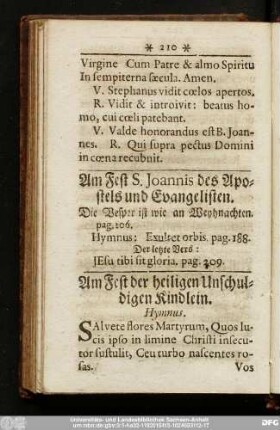 * 210 *
Virgine Cum Patre & almo Spiritu
In sempiterna sæcula. Amen.
V. Stephanus vidit cœlos apertos.
R. Vidit & introivit: beatus ho-
mo, cui cœli patebant.
V. Valde honorandus est B. Joan-
nes. R. Qui supra pectus Domini
in cœna recubuit.
Am Fest S. Joannis des Apo-
stels und Evangelisten.
Die Vesper ist wie an Weyhnachten.
pag. 106.
Hymnus: Exultet orbis. pag. 188.
Der letzte Vers:
JEsu tibi sit gloria. pag. 209.
Am Fest der heiligen Unschul-
digen Kindlein.
Hymnus.
SAlvete flores Martyrum, Quos lu-
cis ipso in limine Christi insecu-
tor sustulit, Ceu turbo nascentes ro-
sas. Vos
Universitäts- und Landesbibliothek Sachsen-Anhalt